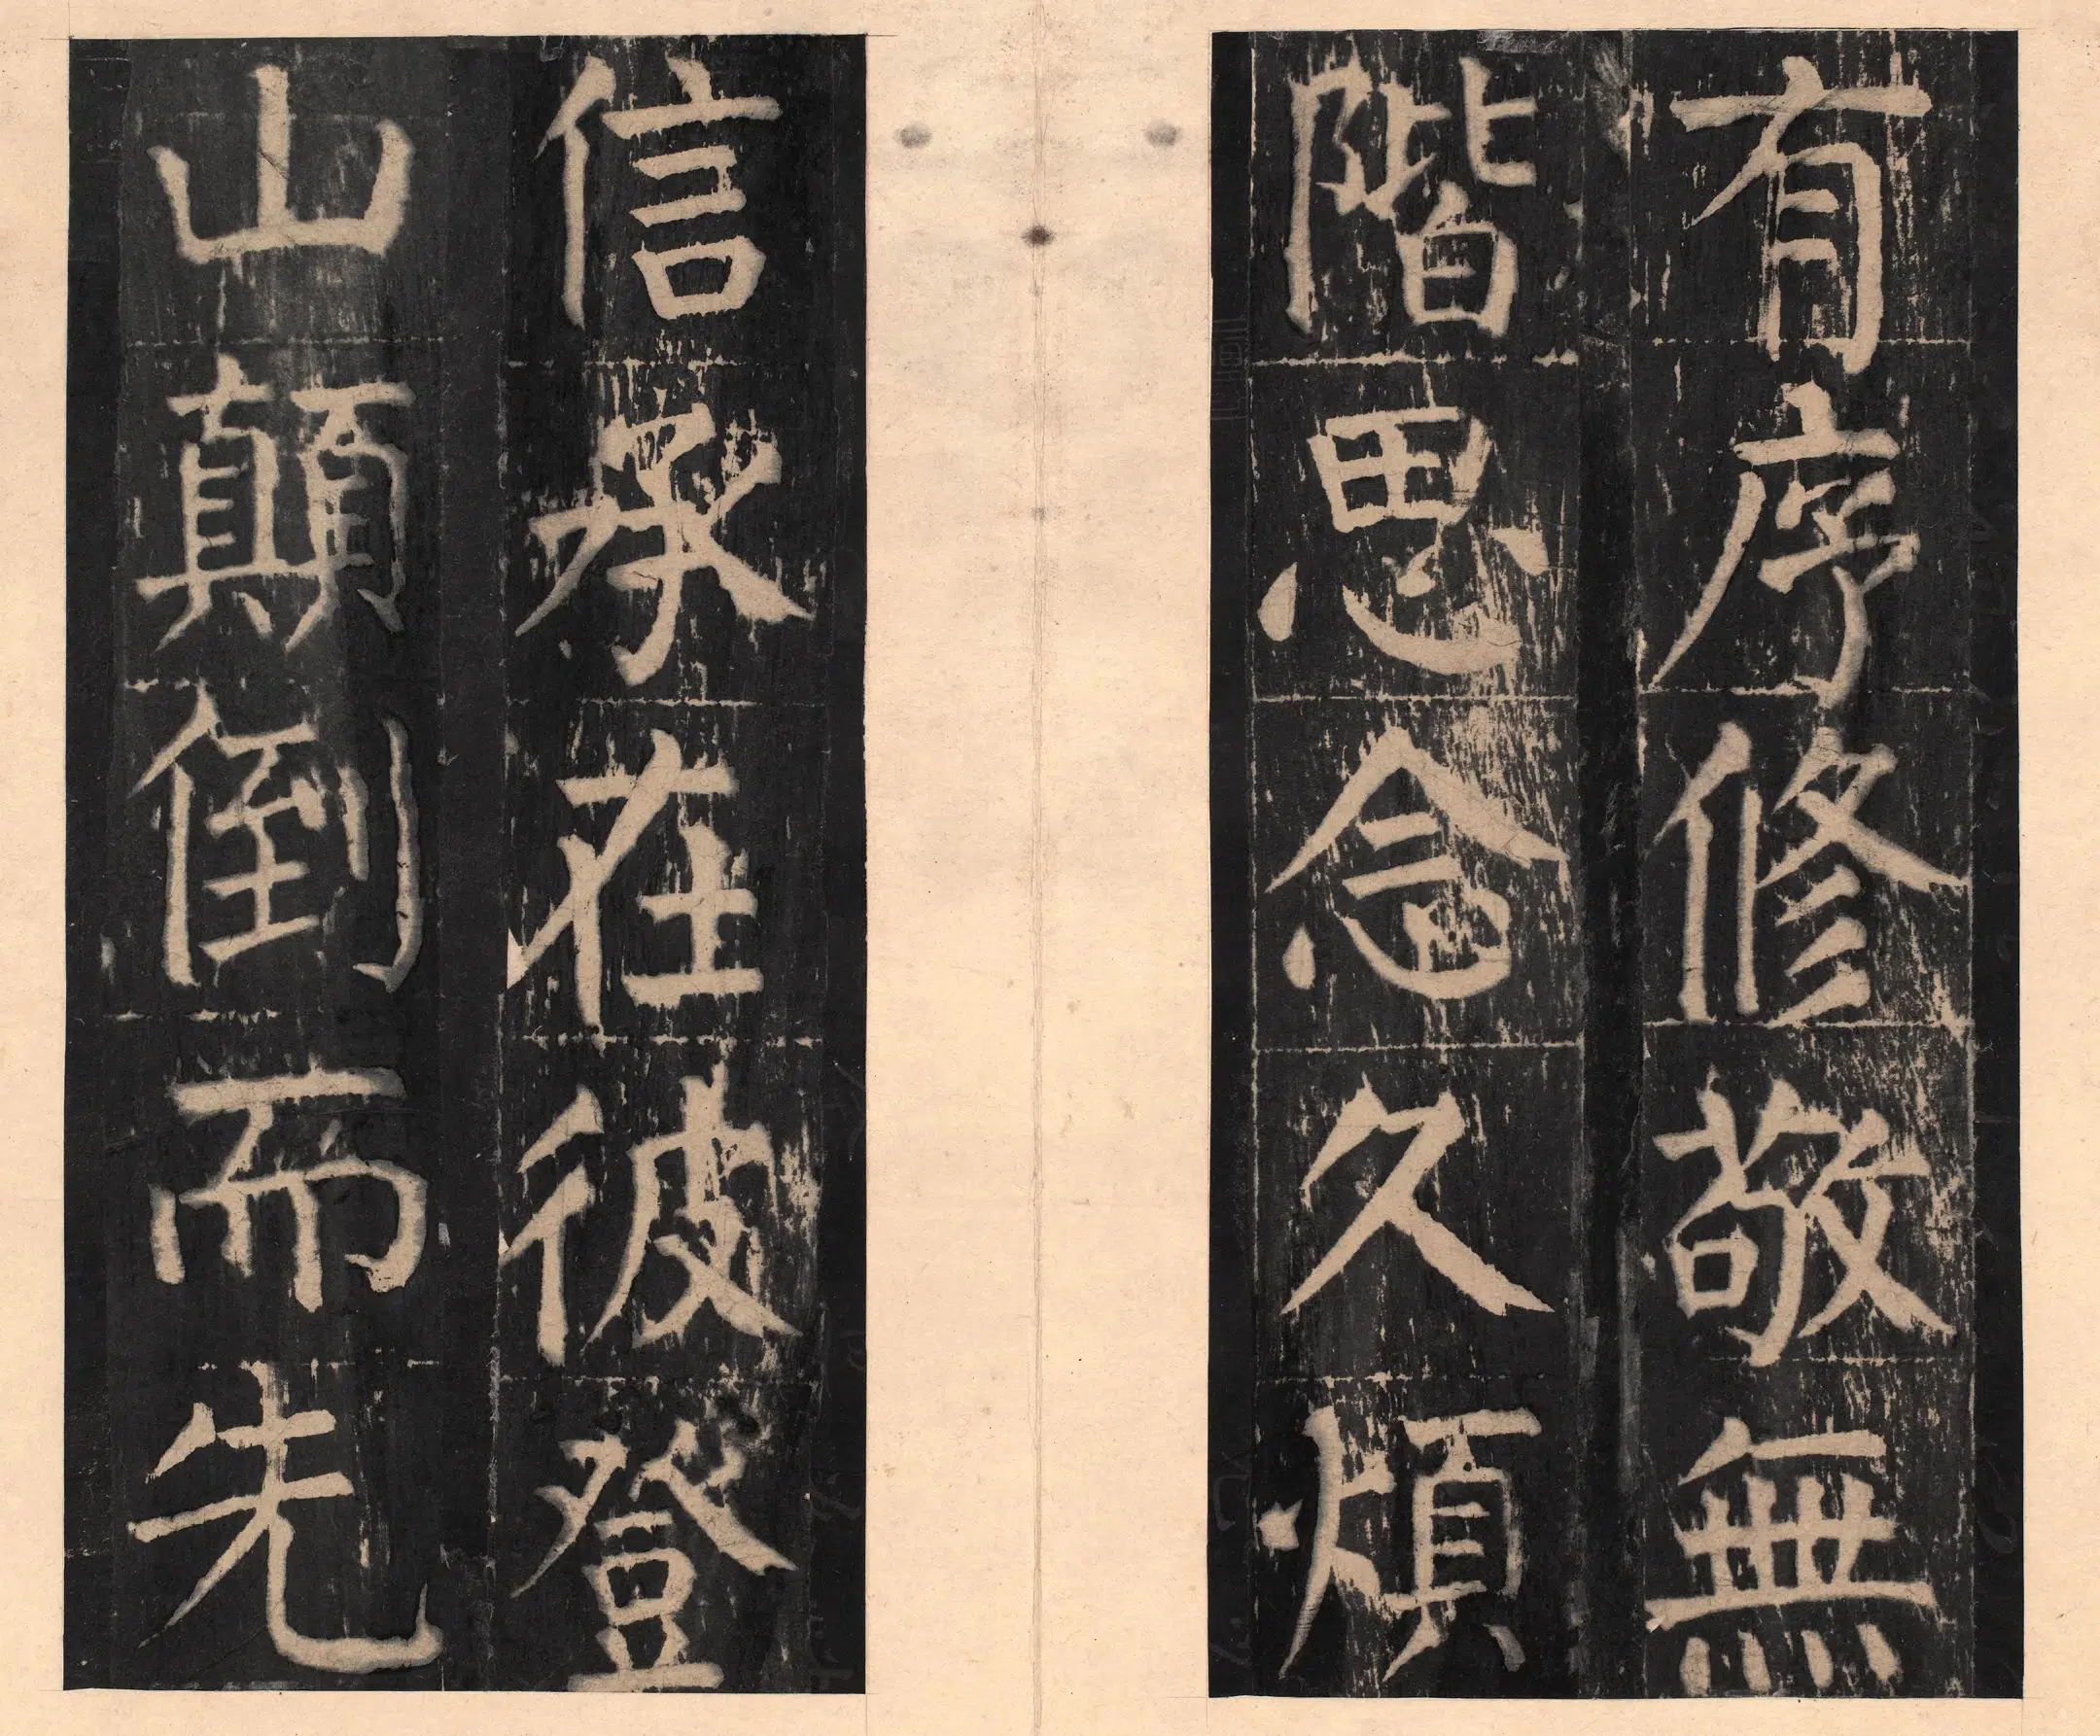 有序修敬無
階思念久煩
信承在彼登
山顛倒而先